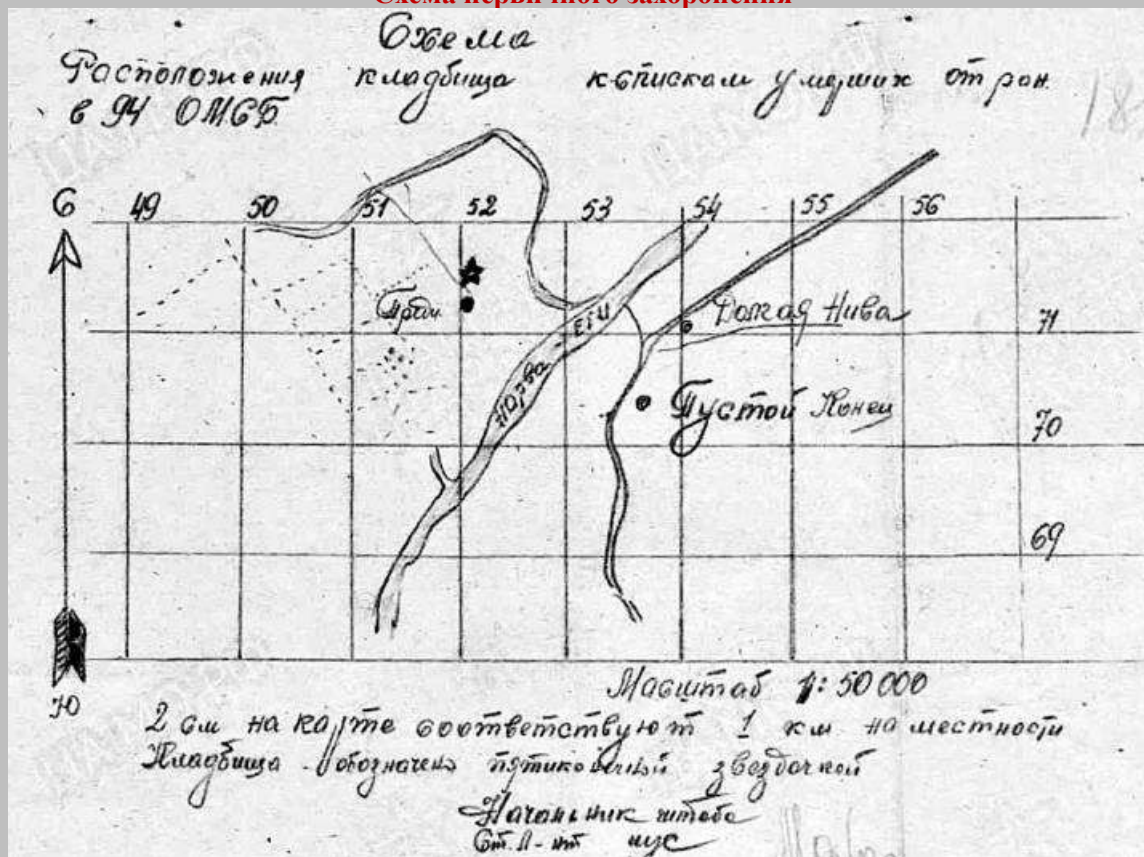 Схема первичного захоронения
Схема
Расположения кладбища к спискам умерших от ран
в 94 ОМСБ
18
С 49 50 51 52 53 54 55 56
Долгая Нива
71
Нарва
Пустой Конец
70
69
Ю
Масштаб 1:50 000
2 см на карте соответствуют 1 км на местности
Кладбища обозначено пятиконечной звездочкой
Начальник штаба
Ст. л-нт